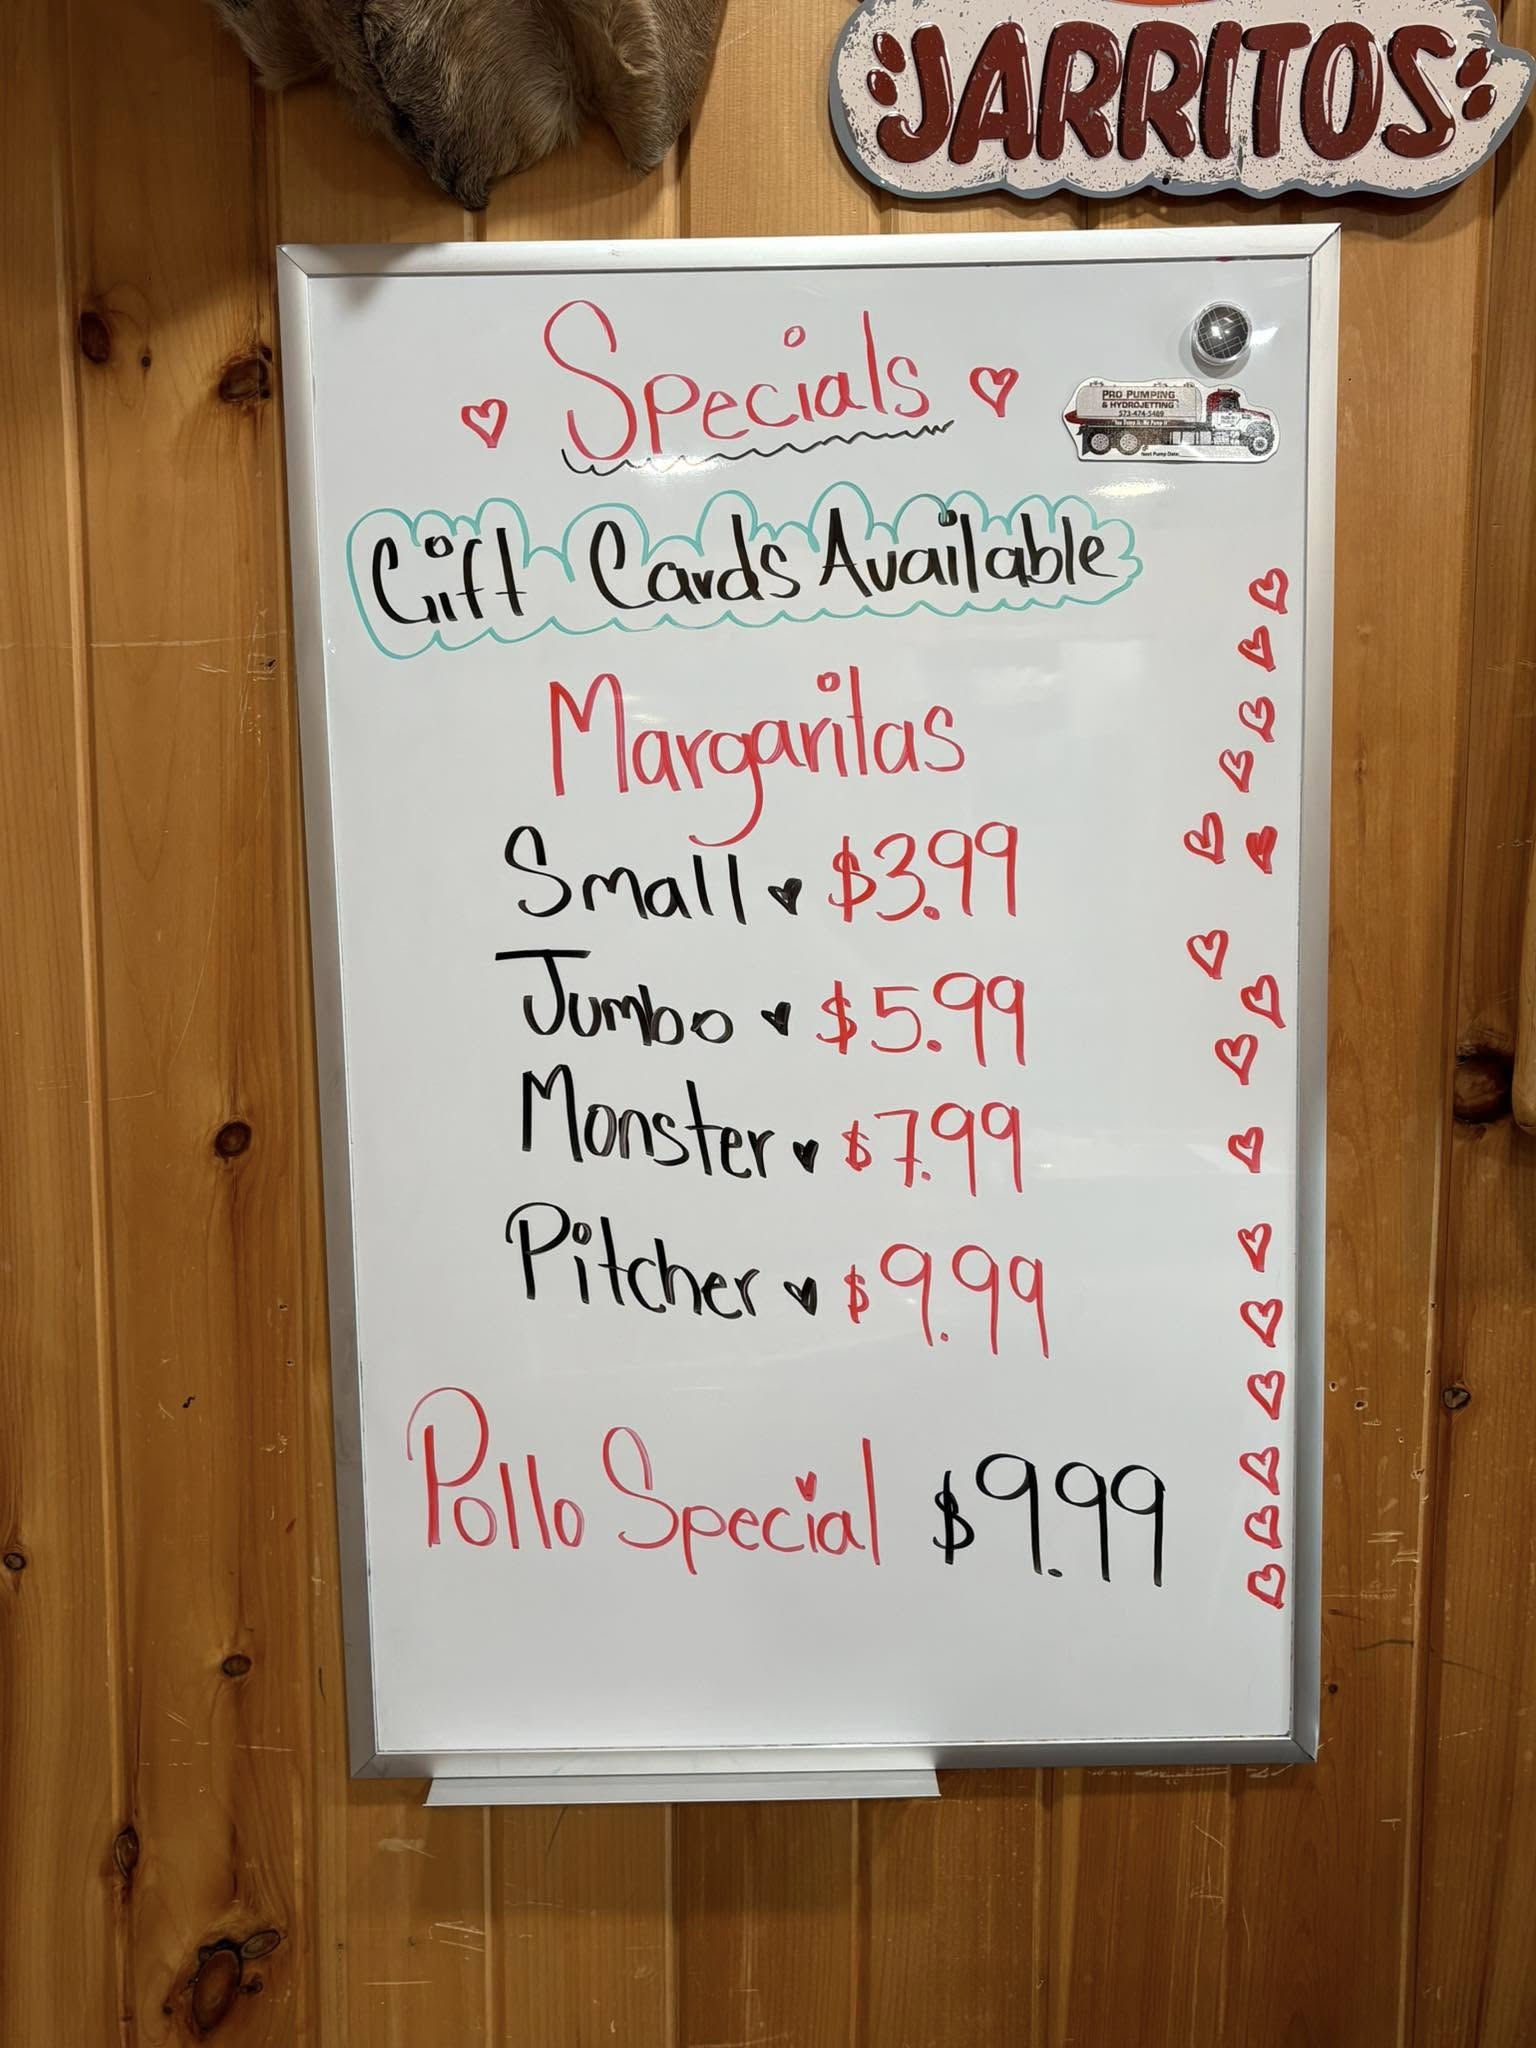 JARRITOS
Specials
PRO PUMPING
& HYDROJETTING
573-474-5489
You Dump It, We Pump It
Next Pump Date:
Gift Cards Available
Margaritas
Small $3.99
Jumbo $5.99
Monster $7.99
Pitcher $9.99
Pollo Special $9.99